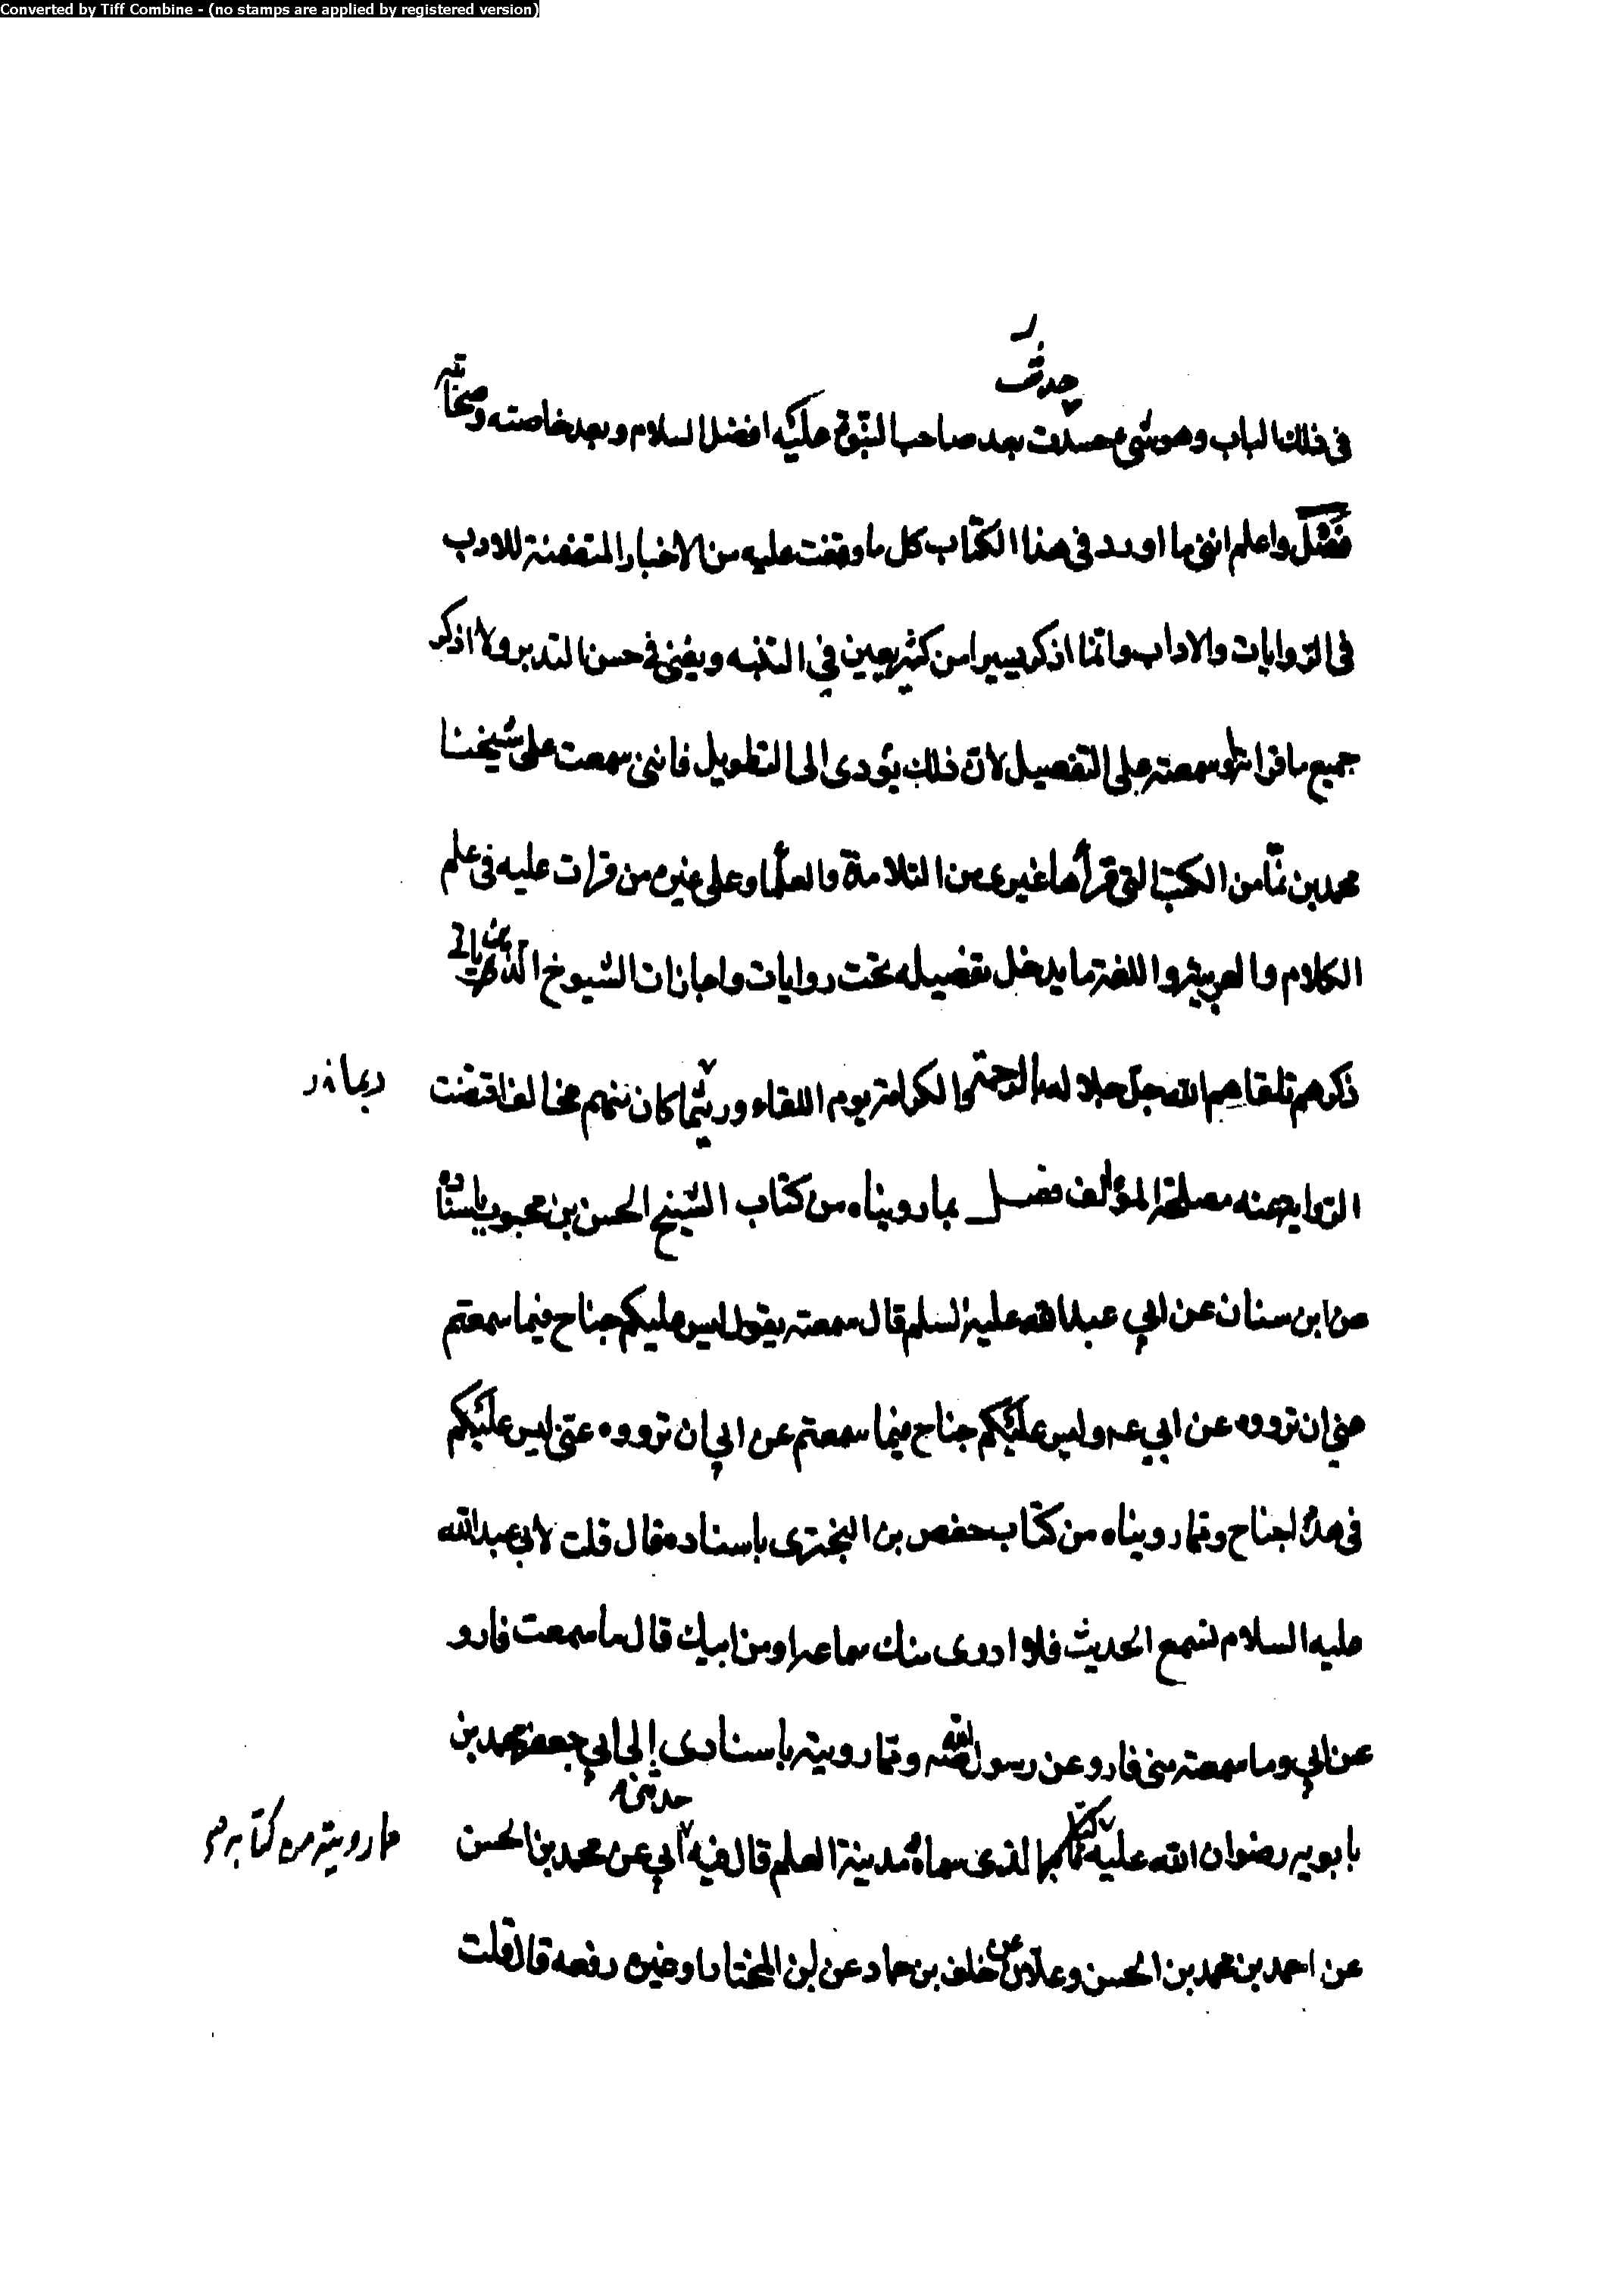 Converted by Tiff Combine - (no stamps are applied by registered version)
حدثت
فى ذلك الباب وهو شىء حسدت بعد صاحب النبوة عليه افضل السلام وبعد خاصته وصحابته
فصل واعلم اننى ما اورد فى هذا الكتاب كل ما وقفت عليه من الاخبار المتضمنة للادب
فى الروايات والاداب وانما اذكر يسيرا من كثير يعين فى التنبه ويغنى فى حسن التدبر ولا اذكر
جميع ما قراته وسمعته على التفصيل لان ذلك يؤدى الى التطويل فاننى سمعت على شيخنا
محمد بن نما من الكتب التى قرأها غيرى من التلامذة والعلماء وعلى غيره من قرات عليه فى علم
الكلام والعربية واللغة ما يدخل تفصيله تحت روايات واجازات الشيوخ الذين ياتى
ذكرهم تلقاهم الله جل جلاله بالرحمة والكرامة يوم اللقاء وربما كان منهم مخالف اقتضت
الرواية عنه مصلحة المؤالف فصل بما رويناه من كتاب الشيخ الحسن بن محبوب باسناده
عن ابن سنان عن ابي عبد الله عليه السلم قال سمعته يقول ليس عليكم جناح فيما سمعتم
منى ان ترووه عن ابي عه وليس عليكم جناح فيما سمعتم عن ابي ان ترووه عنى ليس عليكم
فى هذا جناح ومما رويناه من كتاب حفص بن البخترى باسناده قال قلت لابى عبد الله
عليه السلام نسمع الحديث فلا ادرى منك سماعه او من ابيك قال ما سمعت فارو
عن ابي وما سمعته منى فارو عن رسول الله ومما رويته باسنادى إلى ابي جعفر محمد بن
حدثنى
بابويه رضوان الله عليه الذى سماه مدينة العلم قال فيه ابي عن محمد بن الحسن
ما رويته من كتابه
عن احمد بن محمد بن الحسن وعلان عن خلف بن حماد عن ابن المختار او غيره رفعه قال قلت